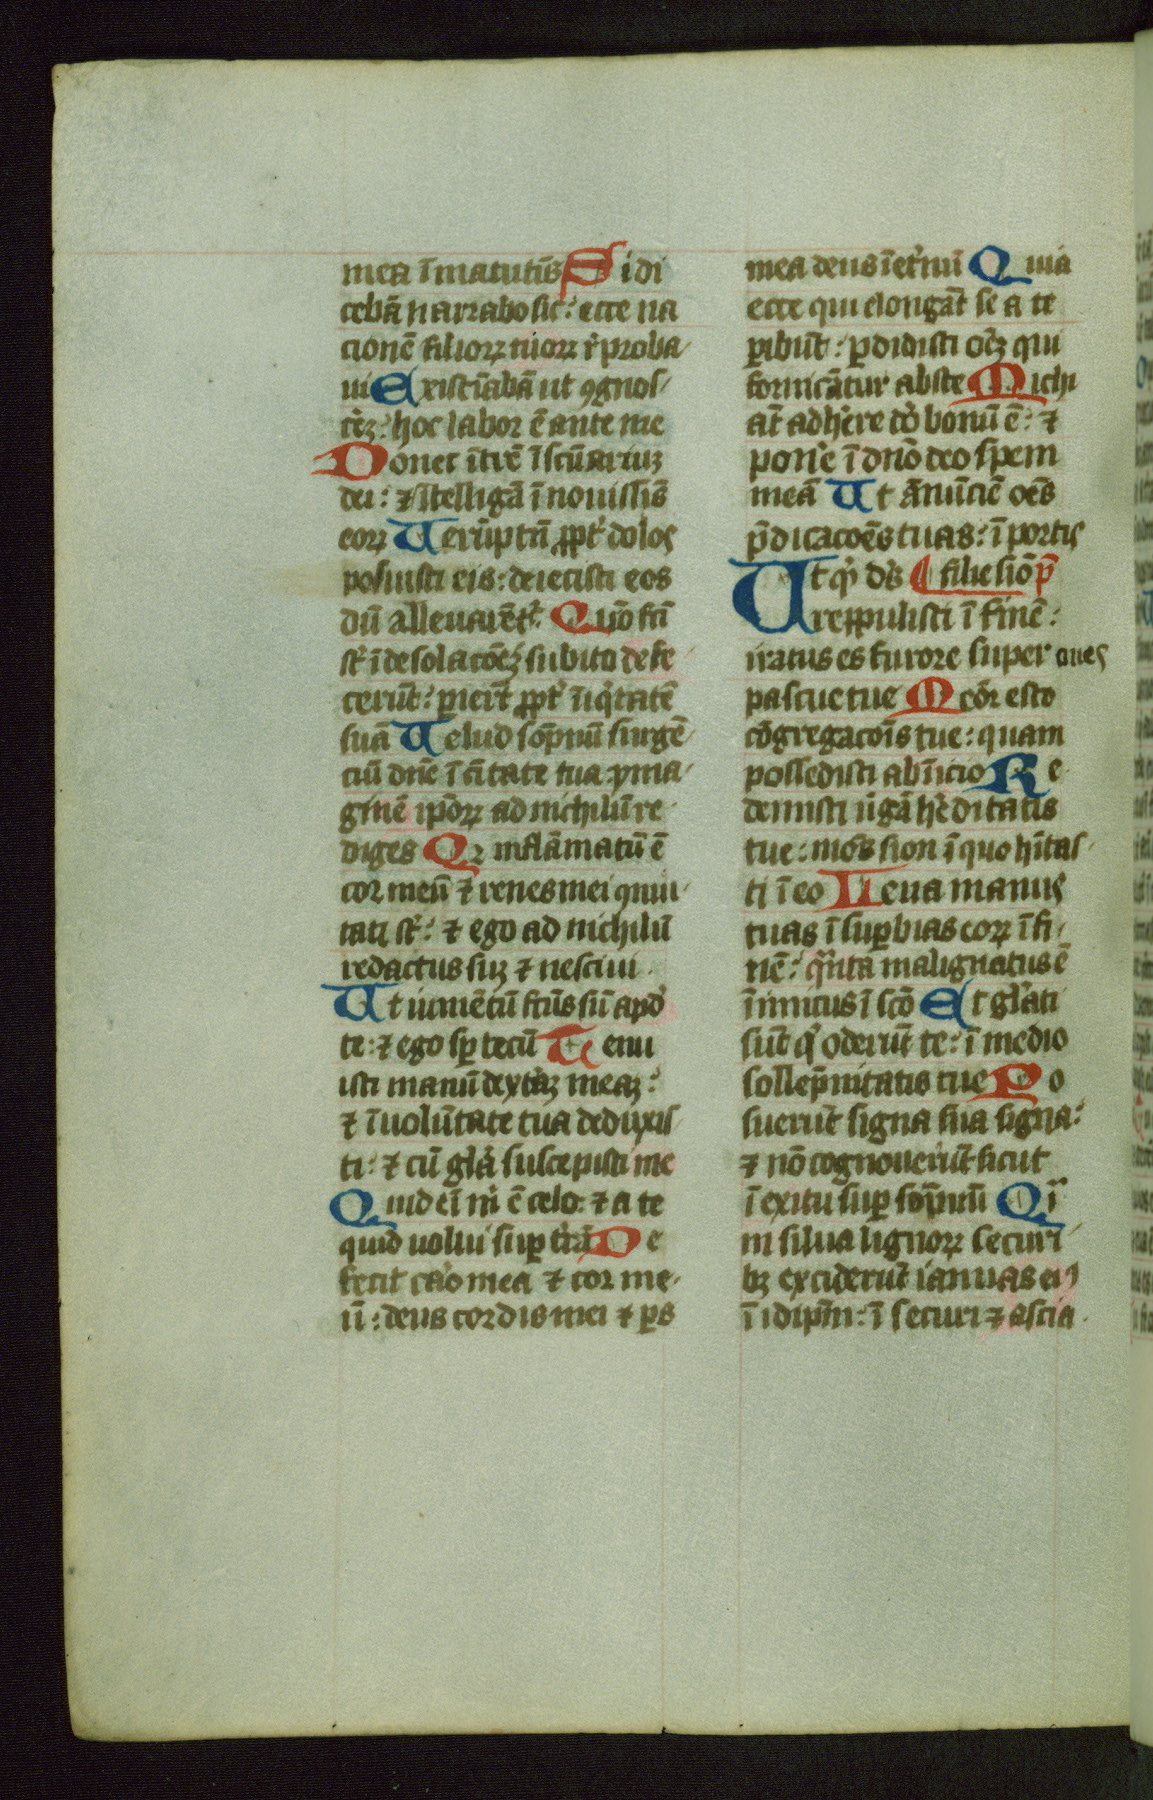 mea ī matutīs Si di
cebā narrabo sic: ecce na
cionē filioꝝ tuoꝝ r̄proba
ui Existīabā ut ꝯgnos
cē̄ꝫ: hoc labor ē ante me
Donec ītrē ī scūariuꝫ
dei: ⁊ ītelligā ī nouissīs
eoꝝ Uerūptn̄ ꝓpt̄ dolos
posuisti eis: deiecisti eos
dū alleuarēt̄ Quō fc̄i
st̄ ī desolacōeꝫ subito defe
cerūt: ꝑiert̄ ꝓpt̄ īiq̇tatē
suā Uelud sop̄nū surgē
ciū dn̄e ī ciitate tua yma
ginē ip̄oꝝ ad nichilū re
diges Qꝛ inflāmatū ē
cor meū ⁊ renes mei ꝯmu
tati st̄: ⁊ ego ad nichilū
redactus suꝫ ⁊ nesciui
Ut iumētū fc̄us sū apd̓
te: ⁊ ego sꝑ tecū Tenu
isti manū dext̄aꝫ meaꝫ:
⁊ ī uolūtate tua deduxis
ti: ⁊ cū gl̄a suscepisti me
Quid eī m̄ ē celo: ⁊ a te
quid uolui suꝑ t̄rā De
fecit cāo mea ⁊ cor me
ū: deus cordis mei ⁊ ꝑs
mea deus ī et̄nū Quia
ecce qui elongāt se a te
ꝑibūt: ꝑdidisti oēꝫ qui
fornicātur abs te Michi
āt adhēre dō bonū ē: ⁊
pon̄e ī dn̄o deo spem
meā Ut ānūciē oēs
p̄dicacōes tuas: ī portis
Ut qͥ ds̄ filie siō p̄
reppulisti ī finē:
iratus es furore super oues
pascue tue Meōr esto
cōgregacōis tue: quam
possedisti ab īicio Re
demisti ūgā hēditatis
tue: mōs sion ī quo hītas
ti ī eo Leua manus
tuas ī suꝑbias eoꝝ ī fi
nē: qn̄ta malignatus ē
īimicus ī scō Et gl̄ati
sūt qͥ oderūt te: ī medio
sollēpnitatis tue Po
suerūt signa sua signa:
⁊ nō cognouerūt sicut
ī exitu suꝑ sop̄mū Qī
in silua lignoꝝ securi
bꝫ exciderūt ianuas eiꝰ
ī idip̄m: ī securi ⁊ ascia